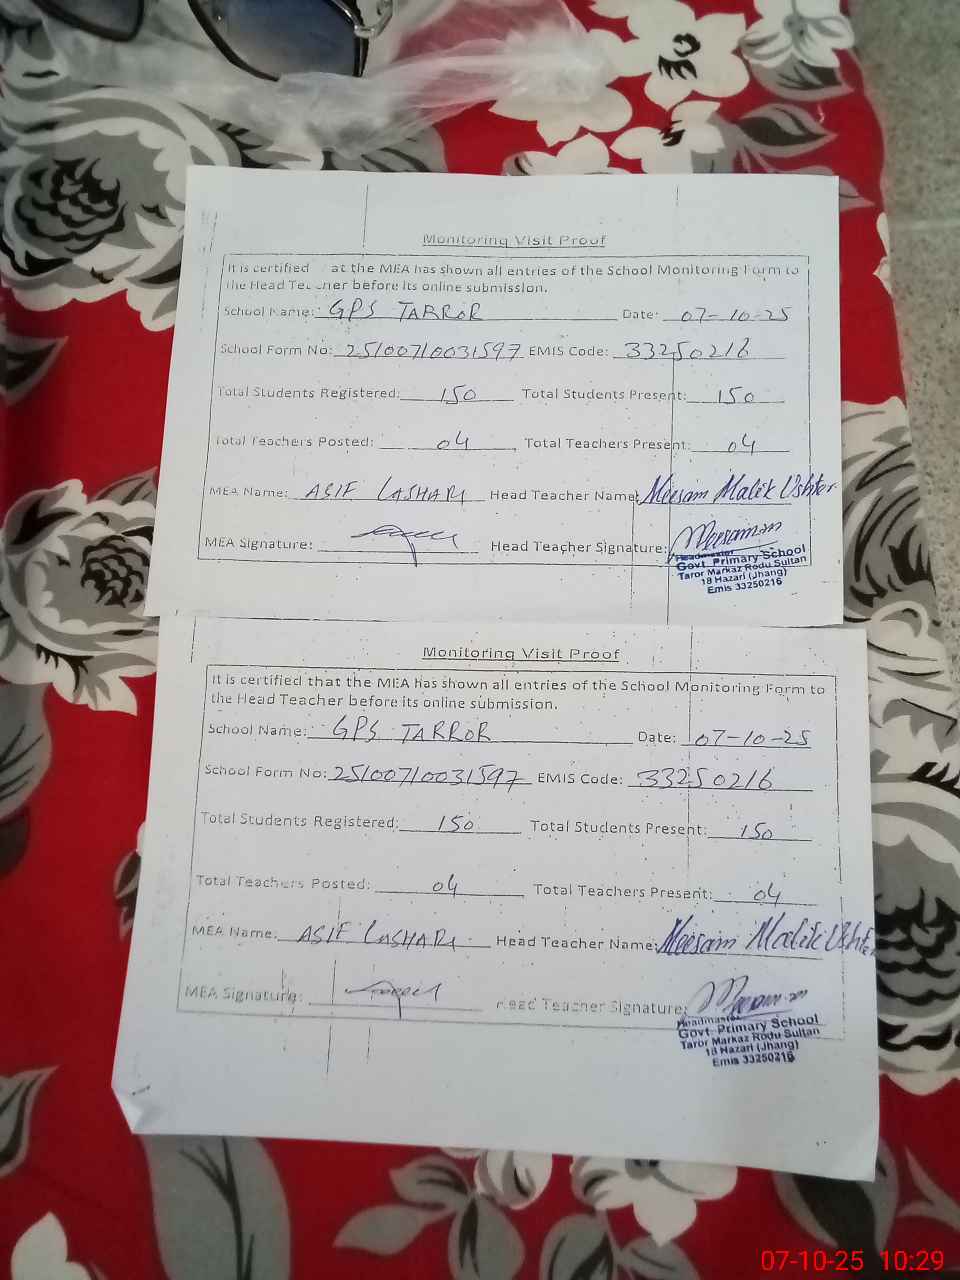 Monitoring Visit Proof
It is certified at the MEA has shown all entries of the School Monitoring Form to
the Head Teacher before its online submission.
School Name: GPS TARROR Date: 07-10-25
School Form No: 25100710031597 EMIS Code: 33250216
Total Students Registered: 150 Total Students Present: 150
Total Teachers Posted: 04 Total Teachers Present: 04
MEA Name: ASIF LASHARI Head Teacher Name: Meesam Malik Ushter
MEA Signature: Head Teacher Signature: Meesam
Headmaster
Govt. Primary School
Taror Markaz Rodu Sultan
18 Hazari (Jhang)
Emis 33250216
Monitoring Visit Proof
It is certified that the MEA has shown all entries of the School Monitoring Form to
the Head Teacher before its online submission.
School Name: GPS TARROR Date: 07-10-25
School Form No: 25100710031597 EMIS Code: 33250216
Total Students Registered: 150 Total Students Present: 150
Total Teachers Posted: 04 Total Teachers Present: 04
MEA Name: ASIF LASHARI Head Teacher Name: Meesam Malik Ushter
MEA Signature: Head Teacher Signature: Meesam
Headmaster
Govt. Primary School
Taror Markaz Rodu Sultan
18 Hazari (Jhang)
Emis 33250216
07-10-25 10:29